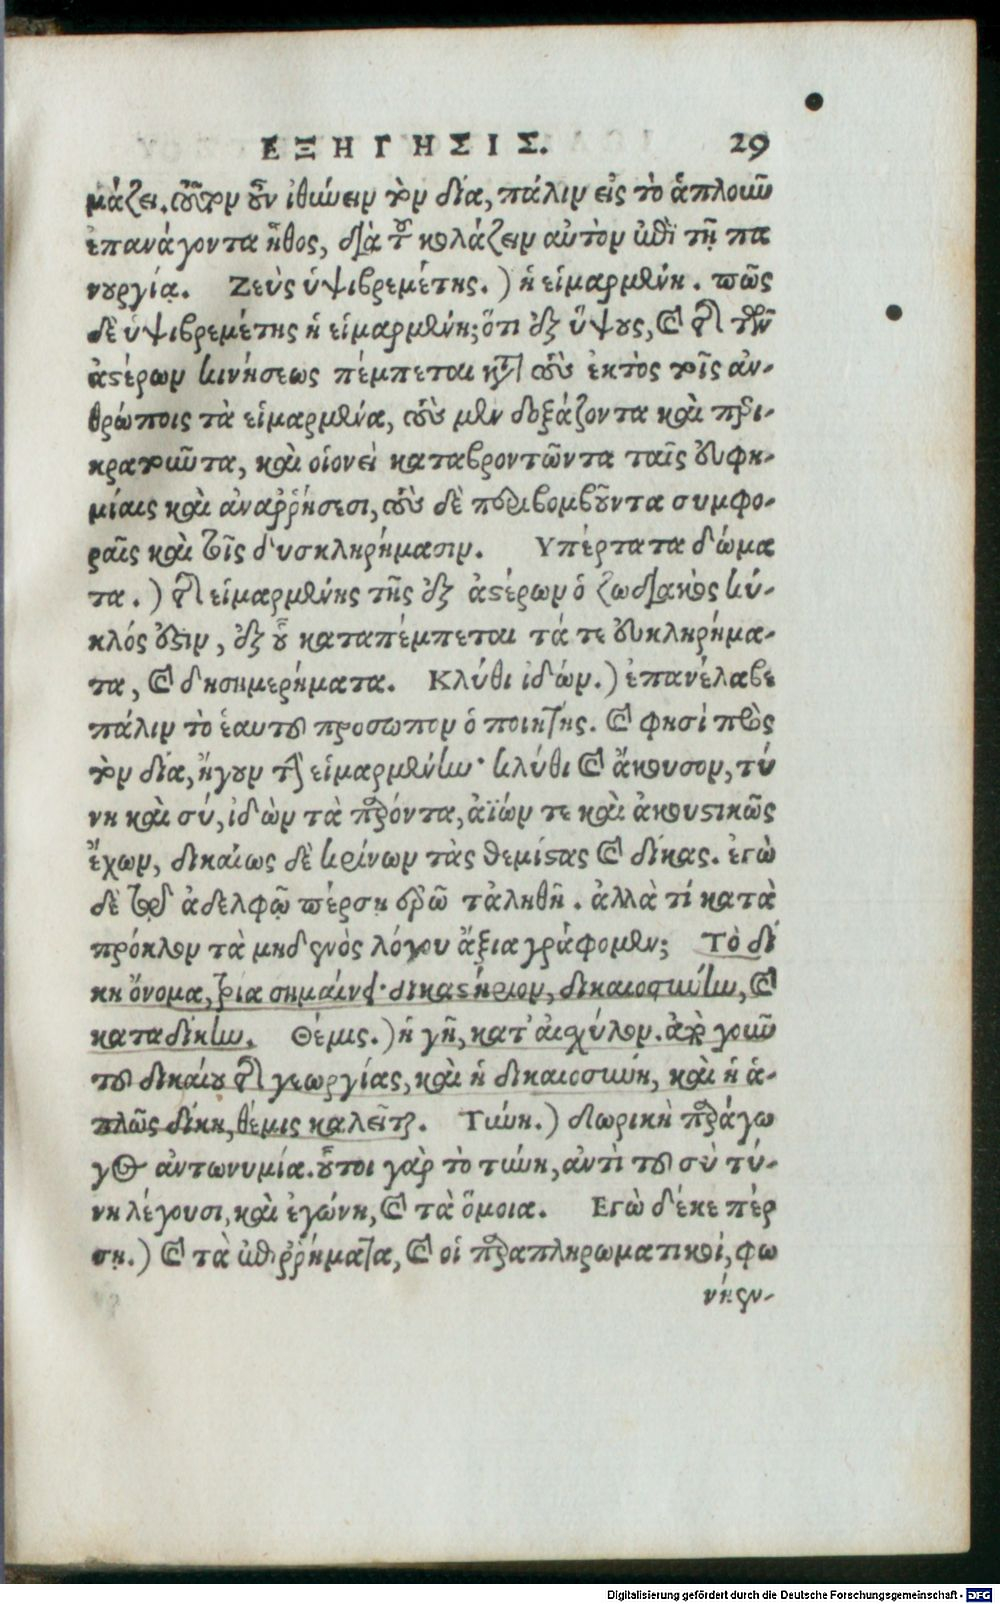 ΕΞΗΓΗΣΙΣ. 29
μάζει. τοῦτον οὖν ἰθύνειν τὸν δία, πάλιν εἰς τὸ ἁπλοικὸν
ἐπανάγοντα ἦθος, διὰ τοῦ κολάζειν αὐτὸν ἐπὶ τῇ πα
νουργίᾳ. Ζεὺς ὑψιβρεμέτης.) ἡ εἱμαρμένη. πῶς
δὲ ὑψιβρεμέτης ἡ εἱμαρμένη; ὅτι ἐξ ὕψους, καὶ τῆς τῶν
ἀστέρων κινήσεως πέμπεται κατὰ τοὺς ἐκτὸς τοῖς ἀν-
θρώποις τὰ εἱμαρμένα, τοὺς μὲν δοξάζοντα καὶ περι-
κρατοῦντα, καὶ οἱονεὶ καταβροντῶντα ταῖς εὐφη-
μίαις καὶ ἀναῤῥήσεσι, τοὺς δὲ περιβομβοῦντα συμφο-
ραῖς καὶ τοῖς δυσκληρήμασιν. Υπέρτατα δώμα
τα.) τῆς εἱμαρμένης τῆς ἐξ ἀστέρων ὁ ζωδιακὸς κύ-
κλός ἐστιν, ἐξ οὗ καταπέμπεται τά τε εὐκληρήμα-
τα, καὶ δυσημερήματα. Κλύθι ἰδών.) ἐπανέλαβε
πάλιν τὸ ἑαυτοῦ προσωπον ὁ ποιητής. καὶ φησὶ πρὸς
τὸν δία, ἤγουν τὴν εἱμαρμένην· κλύθι καὶ ἄκουσον, τύ
νη καὶ σύ, ἰδὼν τὰ παρόντα, ἀΐων τε καὶ ἀκουστικῶς
ἔχων, δικαίως δὲ κρίνων τὰς θέμιστας καὶ δίκας. ἐγὼ
δὲ τῷ ἀδελφῷ πέρσῃ ἐρῶ τἀληθῆ. ἀλλὰ τί κατὰ
πρόκλον τὰ μηδενὸς λόγου ἄξια γράφομεν; Τὸ δί
κη ὄνομα, τρία σημαίνει· δικαστήριον, δικαιοσύνην, καὶ
καταδίκην. Θέμις.) ἡ γῆ, κατ' αἰσχύλον. ἀπὸ γοῦν
τοῦ δικαίου τῆς γεωργίας, καὶ ἡ δικαιοσύνη, καὶ ἡ ἁ-
πλῶς δίκη, θέμις καλεῖται. Τύνη.) δωρικὴ παράγω
γος ἀντωνυμία. οὗτοι γὰρ τὸ τύνη, ἀντὶ τοῦ σὺ τύ-
νη λέγουσι, καὶ ἐγώνη, καὶ τὰ ὅμοια. Εγὼ δέ κε πέρ
ση.) καὶ τὰ ἐπιῤῥήματα, καὶ οἱ παραπληρωματικοὶ, φω
νήεν-
Digitalisierung gefördert durch die Deutsche Forschungsgemeinschaft - DFG